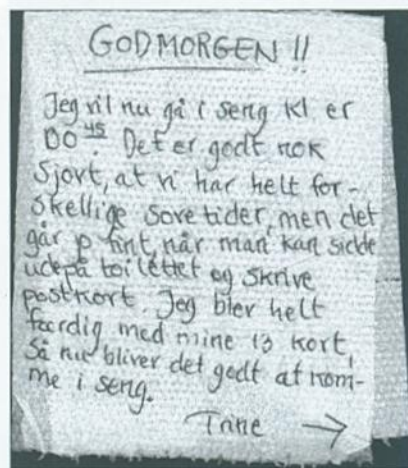 GODMORGEN !!
Jeg vil nu gå i seng kl er
00 45. Det er godt nok
sjovt, at vi har helt for-
skellige sove tider, men det
går jo fint, når man kan sidde
ude på toilettet og skrive
postkort. Jeg blev helt
færdig med mine 13 kort,
så nu bliver det godt at kom-
me i seng.
Trine →